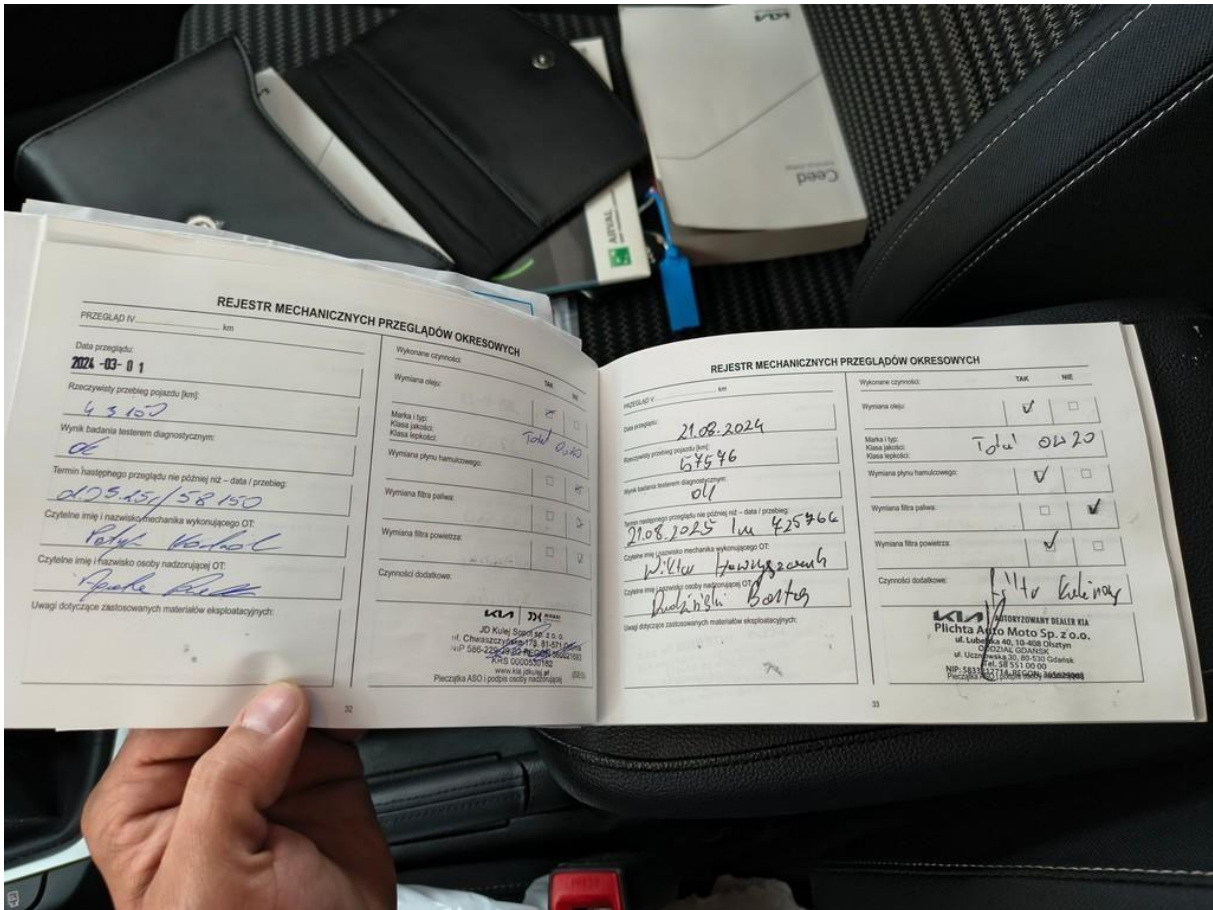 KIA
Ceed
ARVAL
REJESTR MECHANICZNYCH PRZEGLĄDÓW OKRESOWYCH
PRZEGLĄD IV km
Data przeglądu:
2024 -03- 01
Rzeczywisty przebieg pojazdu [km]:
43150
Wynik badania testerem diagnostycznym:
ok
Termin następnego przeglądu nie później niż – data / przebieg:
01.03.25r/58150
Czytelne imię i nazwisko mechanika wykonującego OT:
Czytelne imię i nazwisko osoby nadzorującej OT:
Uwagi dotyczące zastosowanych materiałów eksploatacyjnych:
Wykonane czynności:
TAK NIE
Wymiana oleju:
Marka i typ:
Klasa jakości:
Klasa lepkości:
Total 0w20
Wymiana płynu hamulcowego:
Wymiana filtra paliwa:
Wymiana filtra powietrza:
Czynności dodatkowe:
KIA
JD Kulej Sopot sp. z o. o.
ul. Chwaszczyńska 178, 81-571
NIP 586-229
KRS 0000530182
www.kia.jdkulej.pl
Pieczątka ASO i podpis osoby nadzorującej
32
REJESTR MECHANICZNYCH PRZEGLĄDÓW OKRESOWYCH
PRZEGLĄD V km
Data przeglądu:
21.08.2024
Rzeczywisty przebieg pojazdu [km]:
57576
Wynik badania testerem diagnostycznym:
ok
Termin następnego przeglądu nie później niż – data / przebieg:
21.08.2025
Czytelne imię i nazwisko mechanika wykonującego OT:
Wiktor
Czytelne imię i nazwisko osoby nadzorującej OT:
Uwagi dotyczące zastosowanych materiałów eksploatacyjnych:
Wykonane czynności:
TAK NIE
Wymiana oleju:
Marka i typ:
Klasa jakości:
Klasa lepkości:
Total 0W20
Wymiana płynu hamulcowego:
Wymiana filtra paliwa:
Wymiana filtra powietrza:
Czynności dodatkowe:
filtr kabinowy
KIA AUTORYZOWANY DEALER KIA
Plichta Auto Moto Sp. z o.o.
ul. Lubelska 40, 10-408 Olsztyn
ODDZIAŁ GDAŃSK
ul. Uczniowska 30, 80-530 Gdańsk
Tel. 58 551 00 00
NIP: REGON:
Pieczątka ASO i podpis osoby nadzorującej
33